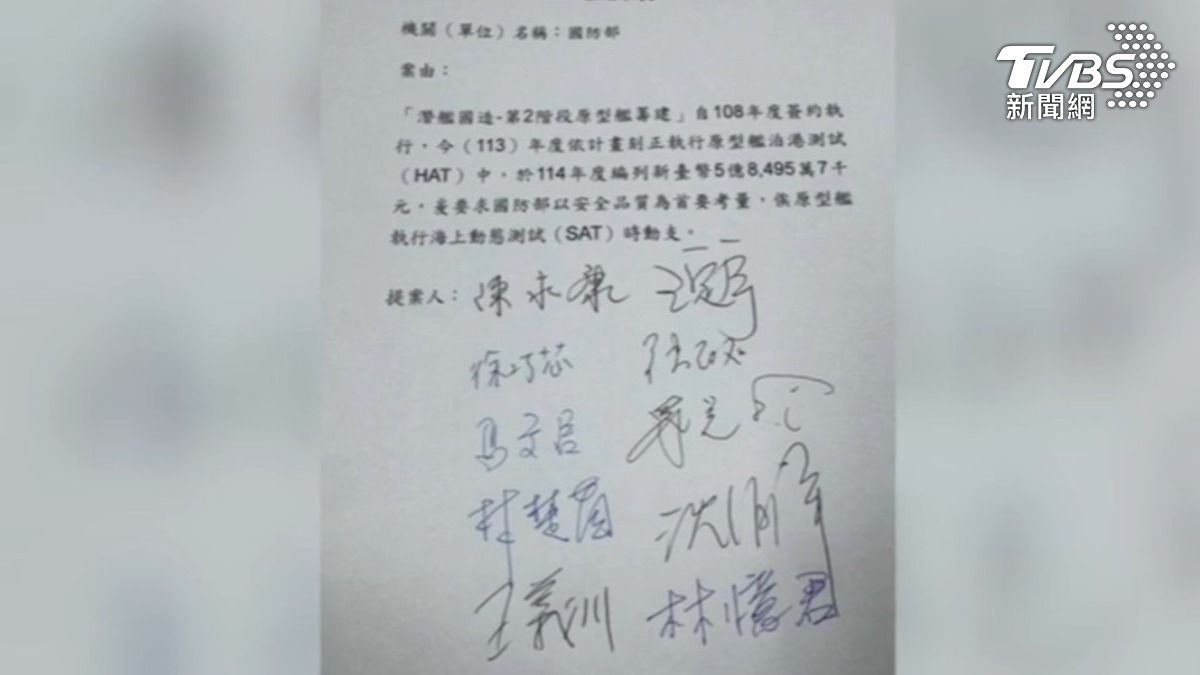 TVBS
新聞網
機關（單位）名稱：國防部
案由：
「潛艦國造-第2階段原型艦籌建」自108年度簽約執
行，今（113）年度依計畫刻正執行原型艦泊港測試
（HAT）中，於114年度編列新臺幣5億8,495萬7千
元，爰要求國防部以安全品質為首要考量，俟原型艦
執行海上動態測試（SAT）時動支。
提案人：陳永康 王定宇
徐巧芯
馬文君
林楚茵 沈伯洋
王義川 林憶君